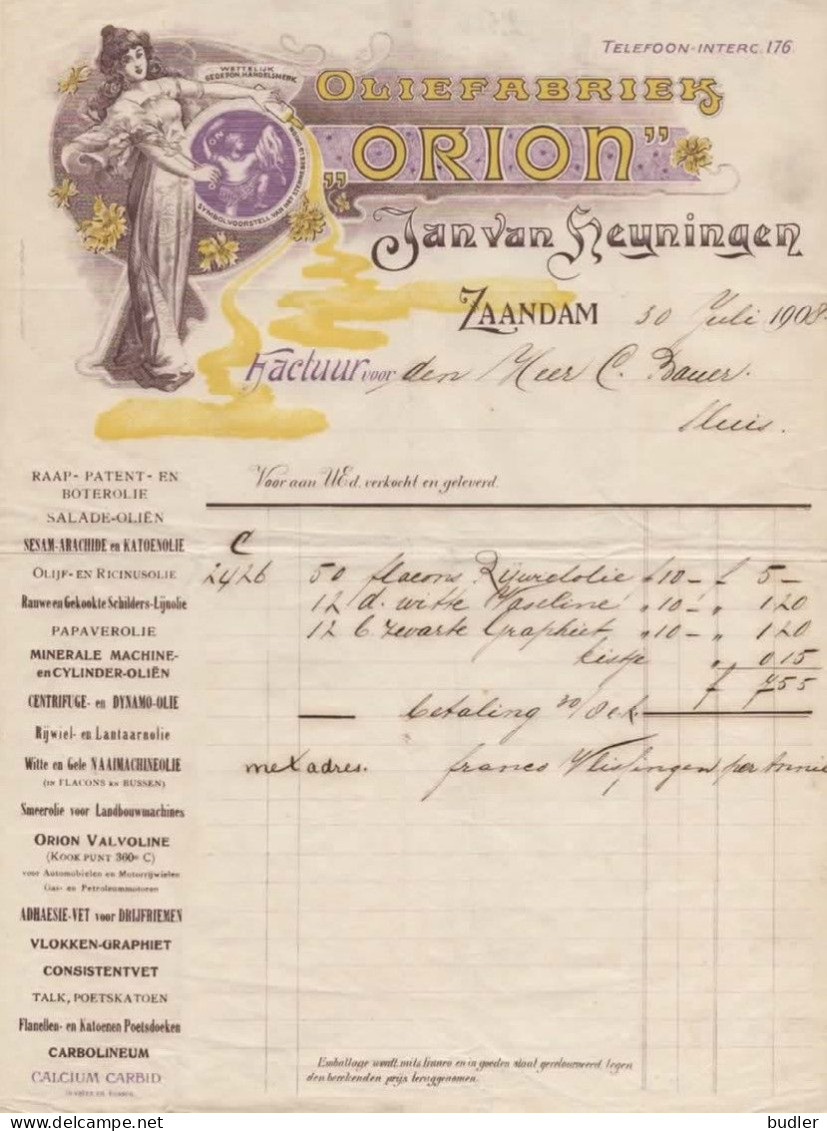 TELEFOON-INTERC. 176.
WETTELIJK
GEDEPON. HANDELSMERK.
OLIEFABRIEK
„ORION”
ORION
SYMBOL. VOORSTELL. VAN HET STERREBEELD ORION
Jan van Heyningen
ZAANDAM 30 Juli 1908.
Factuur voor den Heer C. Bauer.
Sluis.
Voor aan UEd. verkocht en geleverd.
RAAP- PATENT- EN
BOTEROLIE
SALADE-OLIËN
SESAM-ARACHIDE en KATOENOLIE
OLIJF- EN RICINUSOLIE
Rauwe en Gekookte Schilders-Lijnolie
PAPAVEROLIE
MINERALE MACHINE-
en CYLINDER-OLIËN
CENTRIFUGE- en DYNAMO-OLIE
Rijwiel- en Lantaarnolie
Witte en Gele NAAIMACHINEOLIE
(IN FLACONS EN BUSSEN)
Smeerolie voor Landbouwmachines
ORION VALVOLINE
(KOOKPUNT 360° C)
voor Automobielen en Motorrijwielen
Gas- en Petroleummotoren
ADHAESIE-VET voor DRIJFRIEMEN
VLOKKEN-GRAPHIET
CONSISTENTVET
TALK, POETSKATOEN
Flanellen- en Katoenen Poetsdoeken
CARBOLINEUM
CALCIUM CARBID
C
2426 50 flacons Rijwielolie f 10 – f 5 –
12 d. witte Vaseline „ 10 – „ 1 20
12 b. zwarte Graphiet „ 10 – „ 1 20
kistje „ 0 15
f 7 55
betaling 30/8 e.k.
met adres. franco Vlissingen per Annie
Emballage wordt, mits franco en in goeden staat geretourneerd, tegen
den berekenden prijs teruggenomen.
budler